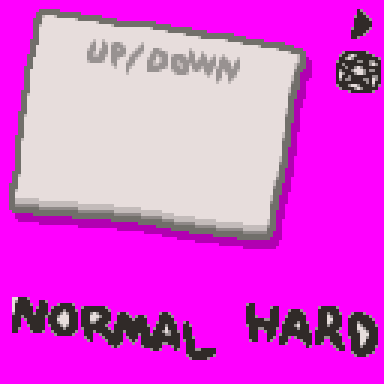 UP/DOWN
NORMAL HARD